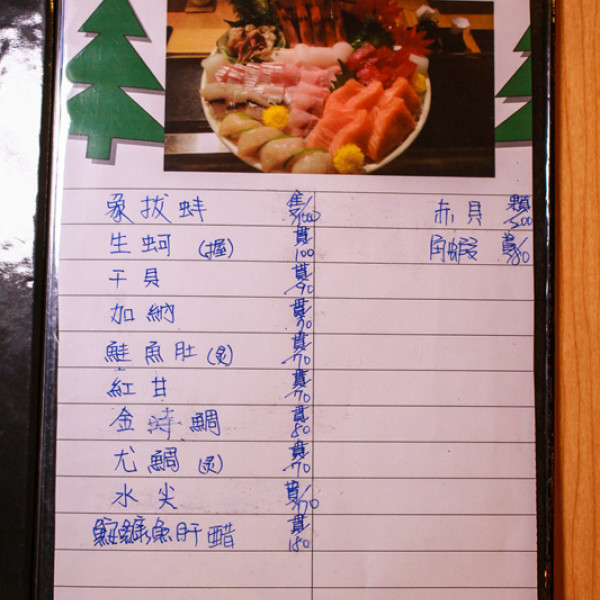 象拔蚌 隻/1000
生蚵(握) 貫100
干貝 貫/90
加納 貫/90
鮭魚肚(炙) 貫/70
紅甘 貫/70
金時鯛 貫/80
尤鯛(炙) 貫/70
水尖 貫/70
鮟鱇魚肝醋 貫180
赤貝 顆/500
角蝦 貫/80